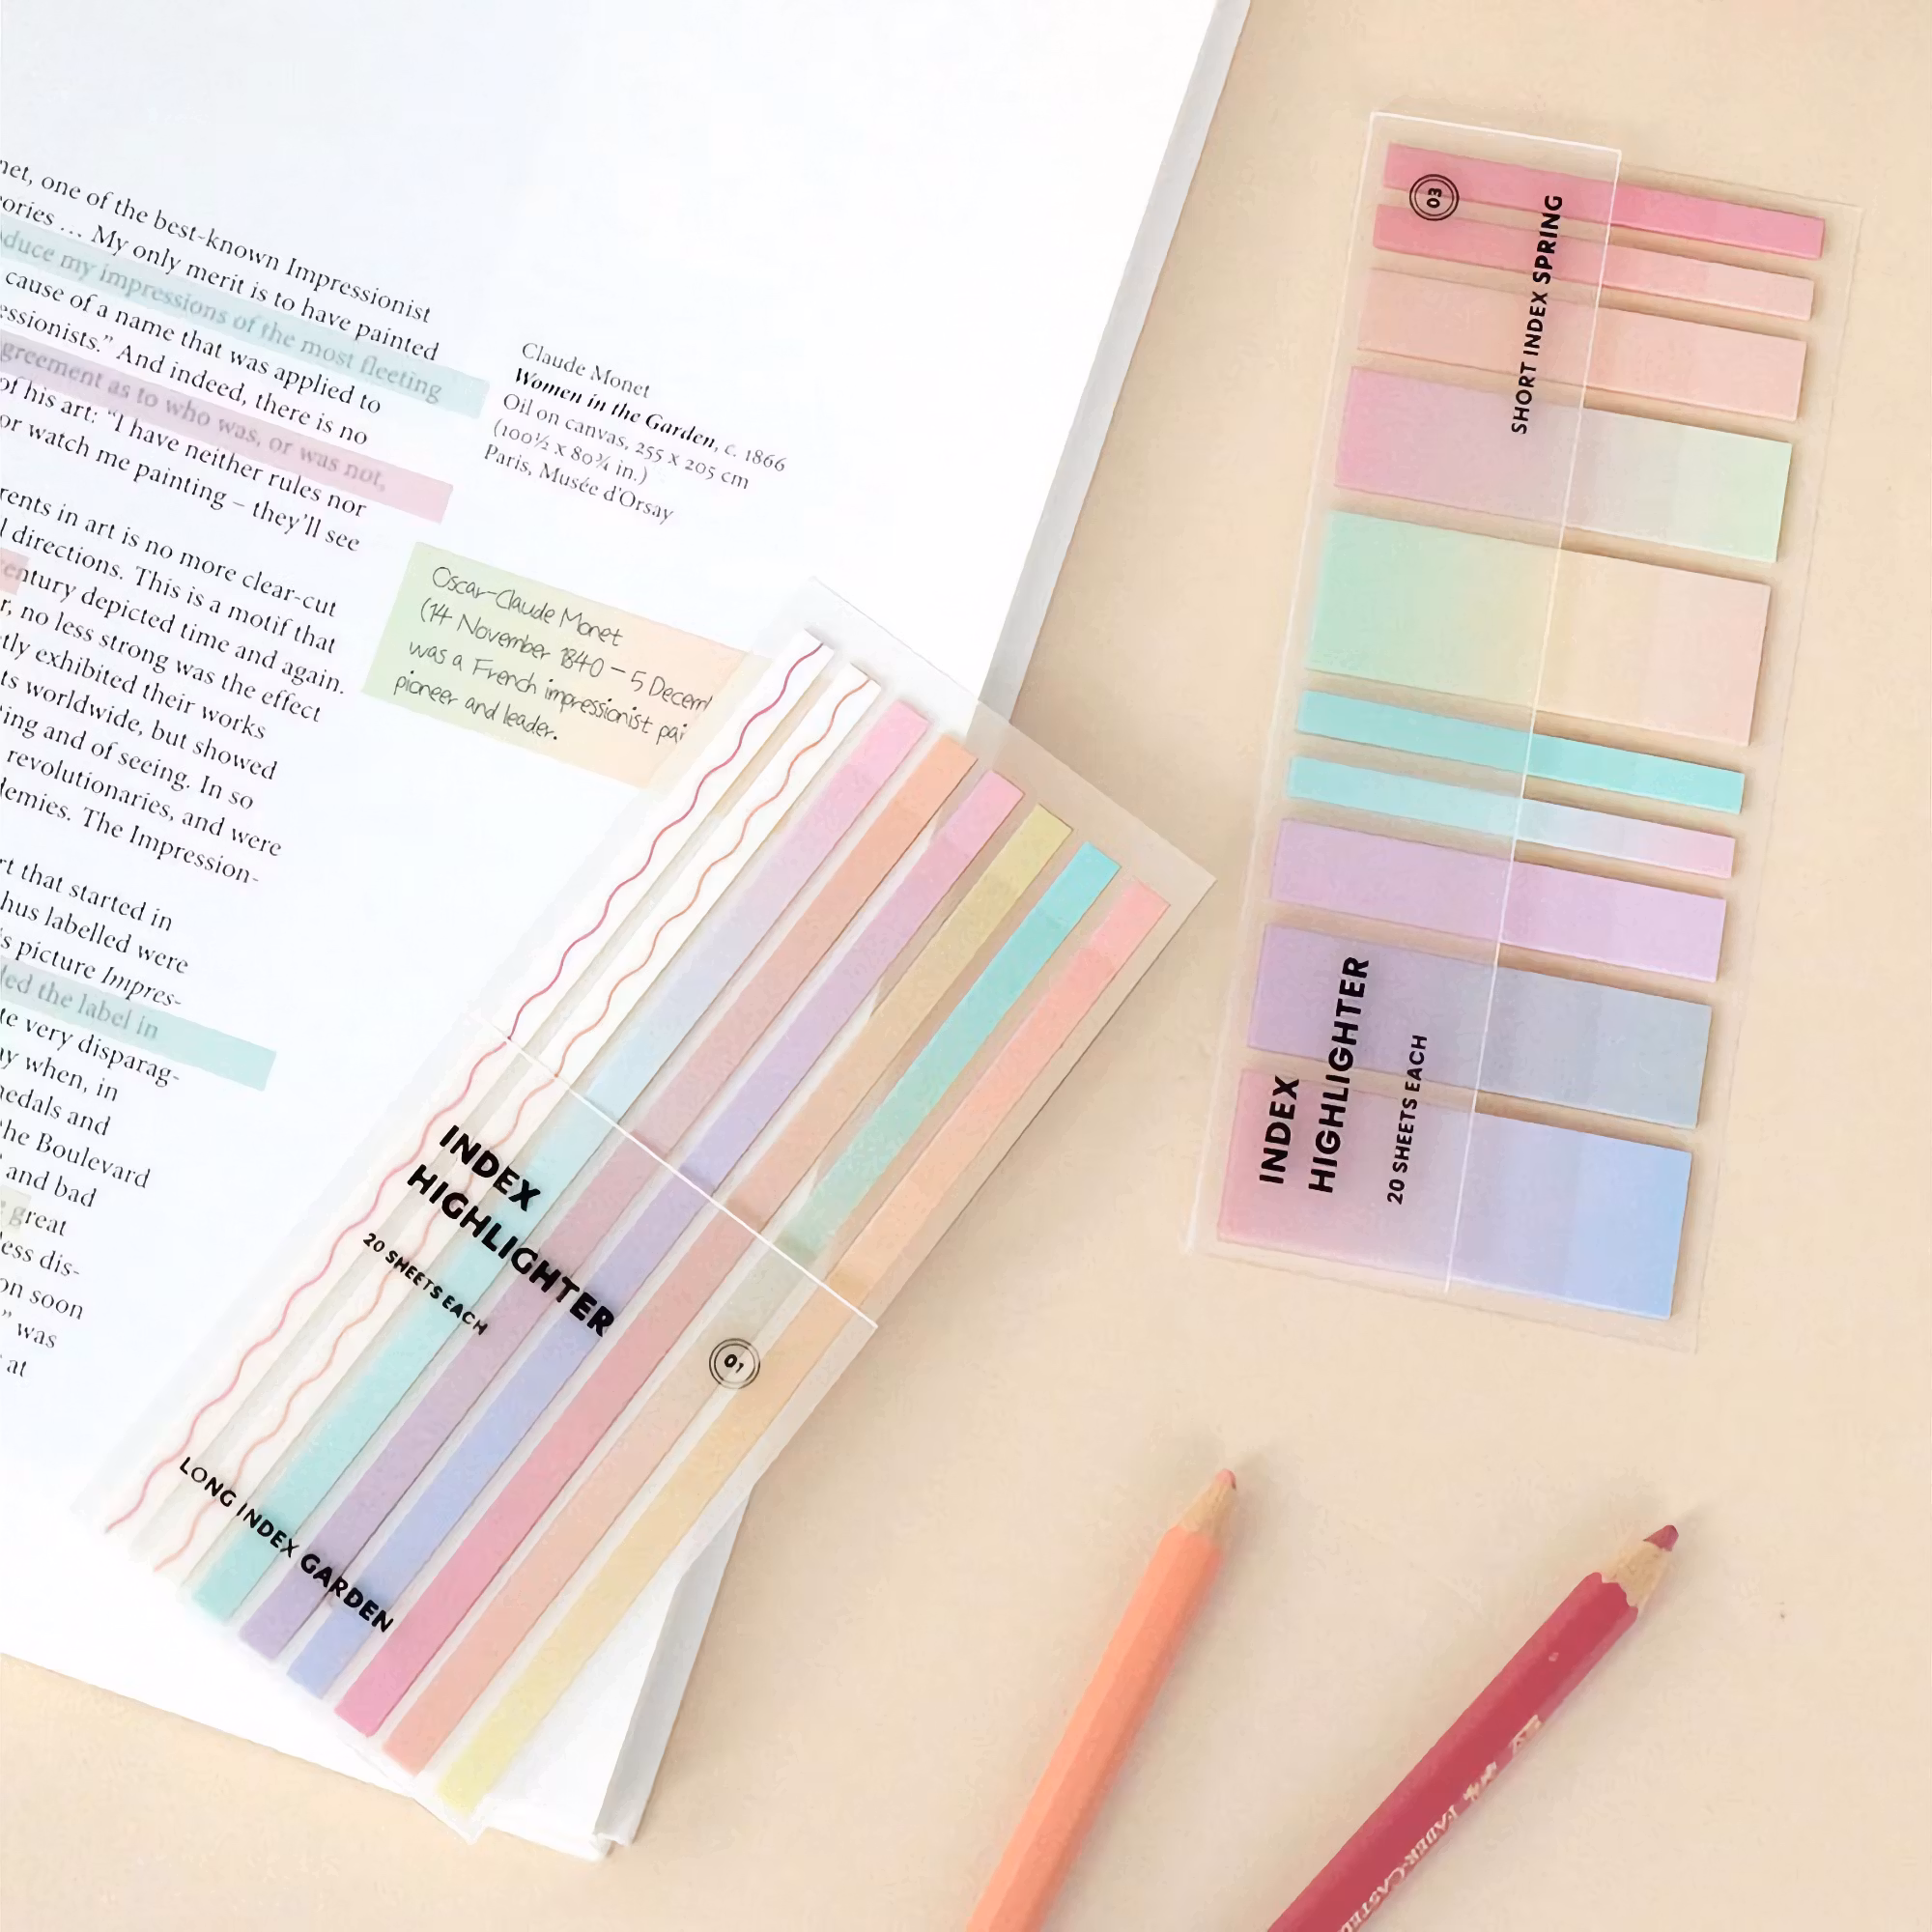 net, one of the best-known Impressionist
ories ... My only merit is to have painted
duce my impressions of the most fleeting
cause of a name that was applied to
essionists.” And indeed, there is no
greement as to who was, or was not,
of his art: “I have neither rules nor
or watch me painting – they’ll see
rents in art is no more clear-cut
l directions. This is a motif that
entury depicted time and again.
r, no less strong was the effect
tly exhibited their works
ts worldwide, but showed
ing and of seeing. In so
revolutionaries, and were
demies. The Impression-
rt that started in
hus labelled were
s picture Impres-
led the label in
te very disparag-
ay when, in
nedals and
the Boulevard
and bad
great
less dis-
on soon
” was
at
Claude Monet
Women in the Garden, c. 1866
Oil on canvas, 255 x 205 cm
(100½ x 80¾ in.)
Paris, Musée d'Orsay
Oscar-Claude Monet
(14 November 1840 – 5 Decem
was a French impressionist pai
pioneer and leader.
INDEX
HIGHLIGHTER
20 SHEETS EACH
01
LONG INDEX GARDEN
03
SHORT INDEX SPRING
INDEX
HIGHLIGHTER
20 SHEETS EACH
FABER-CASTELL